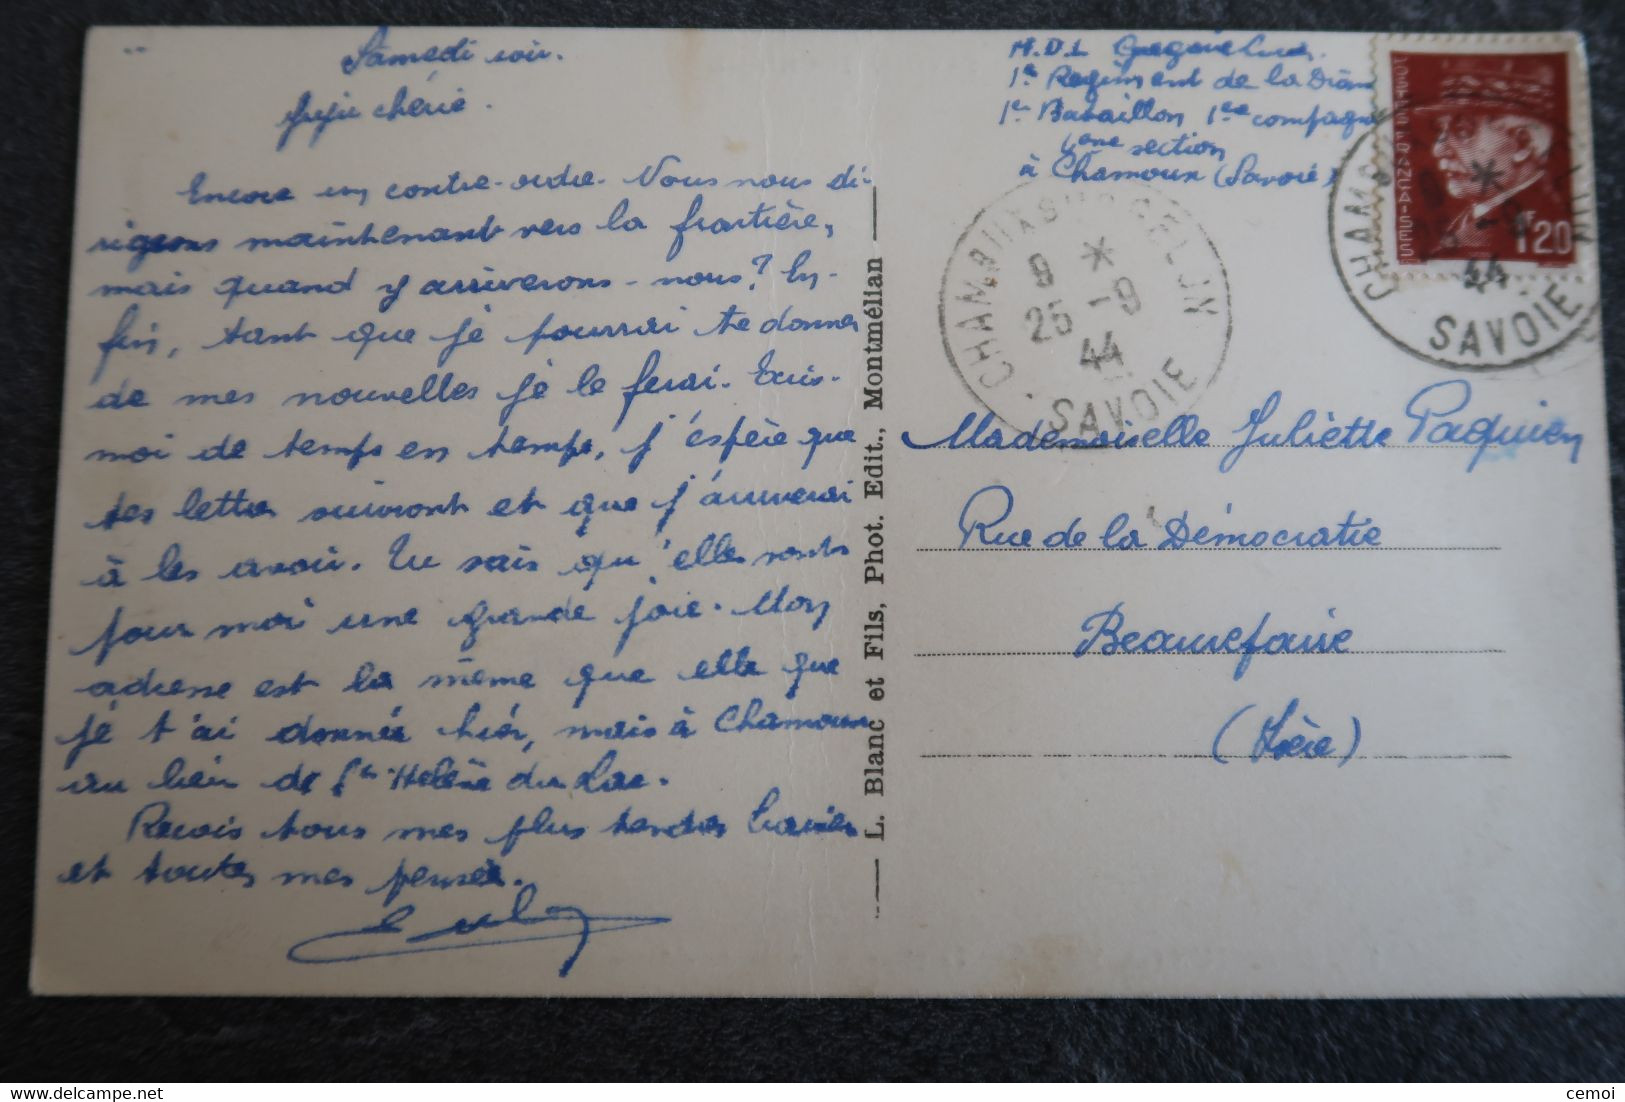 Samedi soir.
Juju chérie.
Encore un contre-ordre. Nous nous di-
rigeons maintenant vers la frontière,
mais quand y arriverons-nous? En-
fin, tant que je pourrai te donner
de mes nouvelles je le ferai. Ecris-
moi de temps en temps, j'espère que
tes lettres suivront et que j'arriverai
à les avoir. Tu sais qu'elles sont
pour moi une grande joie. Mon
adresse est la même que celle que
je t'ai donnée hier, mais à Chamoux
au lieu de Ste Helène du Lac.
Reçois tous mes plus tendres baisers
et toutes mes pensées.
L. Blanc et Fils, Phot. Edit., Montmélian
M.D.L
1er Regiment de la Drôme
1er Bataillon 1ere compagnie
section
à Chamoux (Savoie)
POSTES FRANÇAISES
1F20
CHAMOUX SUR GELON
9 *
25 -9
44
SAVOIE
CHAMOUX
9 *
-9
44
SAVOIE
Mademoiselle Juliette Paquien
Rue de la Démocratie
Beaurefaire
(Isère)
cemoi